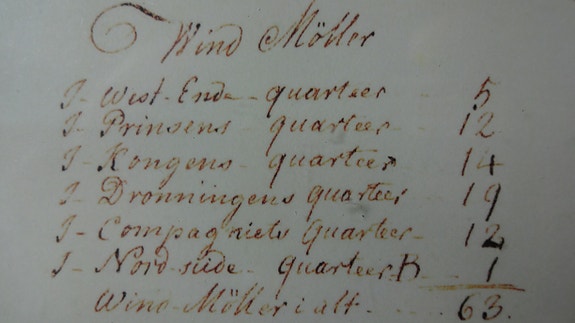 Wind Möller
I - West-Ende - quarteer - 5
I - Prinsens - quarteer - - 12
I - Kongens - quarteer 14
I - Dronningens quarteer 19
I - Compagniets Quarteer - 12
I - Nord side - quarteer B - - 1
Wind-Möller i alt - - - - 63.